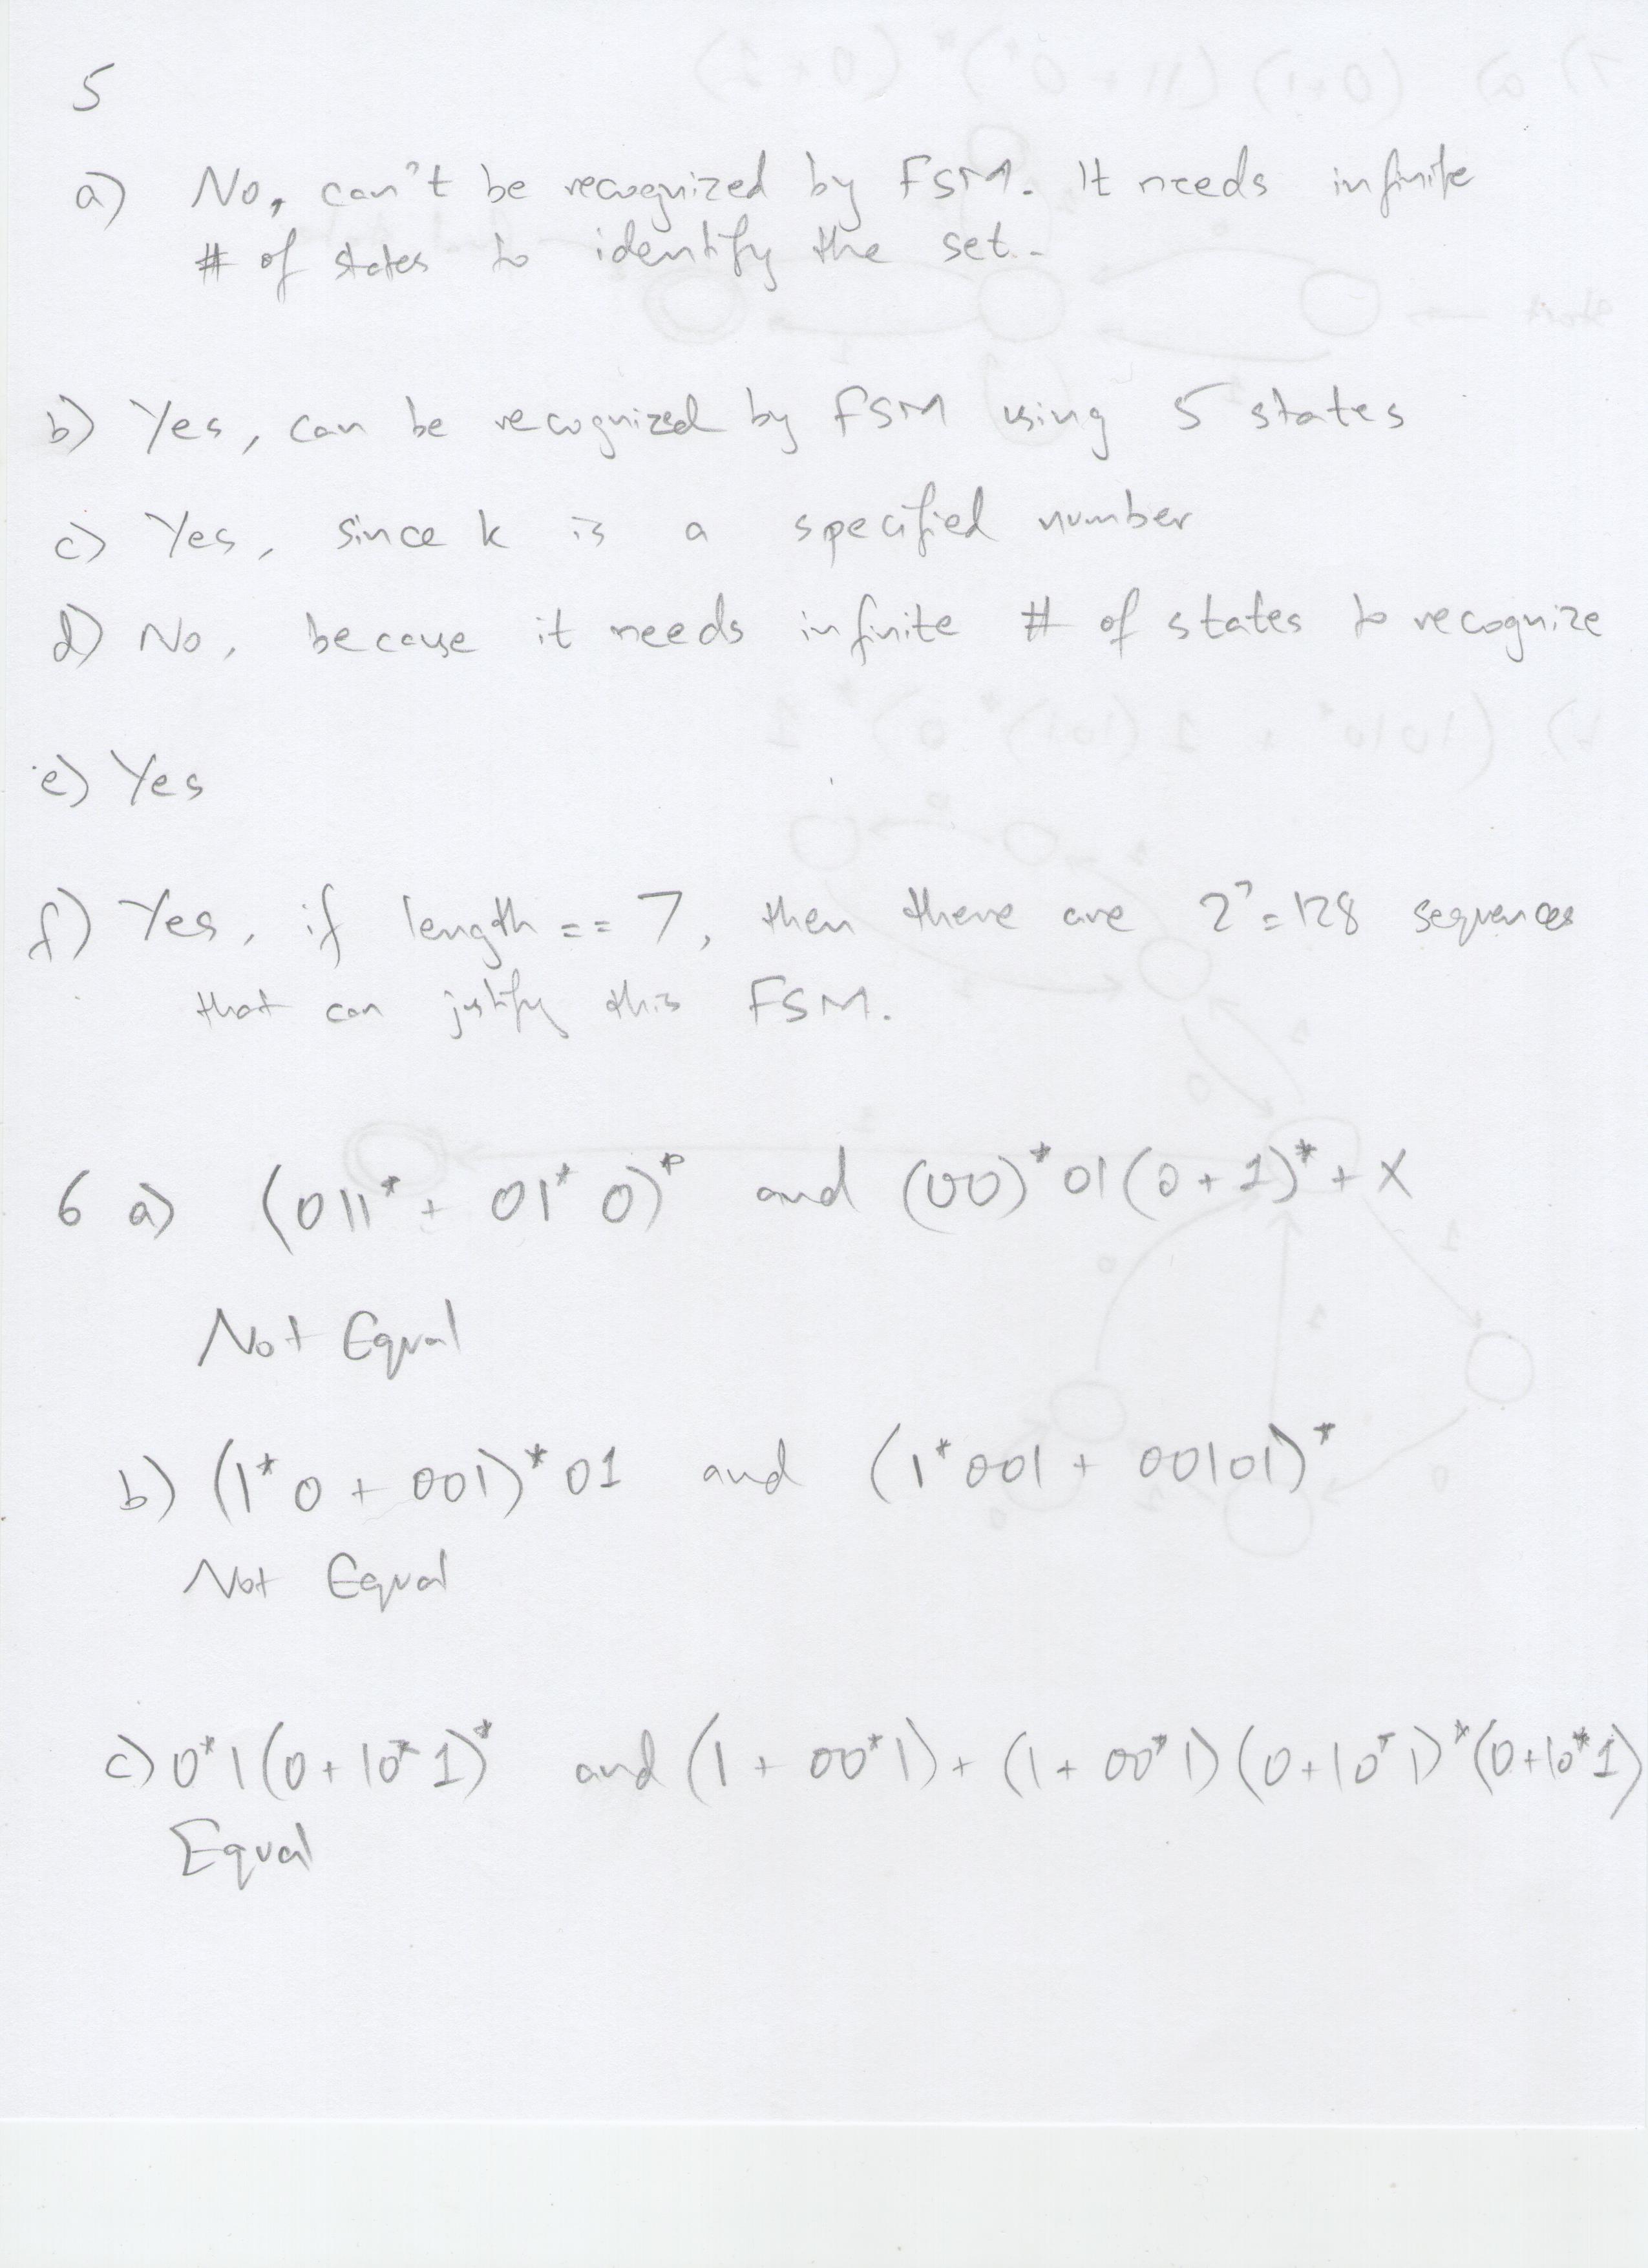 5
a) No, can't be recognized by FSM. It needs infinite
# of states to identify the set.
b) Yes, can be recognized by FSM using 5 states
c) Yes, since k is a specified number
d) No, because it needs infinite # of states to recognize
e) Yes
f) Yes, if length == 7, then there are 2^7=128 sequences
that can justify this FSM.
6 a) (011* + 01*0)* and (00)*01(0+1)* + X
Not Equal
b) (1*0 + 001)*01 and (1*001 + 00101)*
Not Equal
c) 0*1(0+10*1)* and (1+00*1)+(1+00*1)(0+10*1)*(0+10*1)
Equal